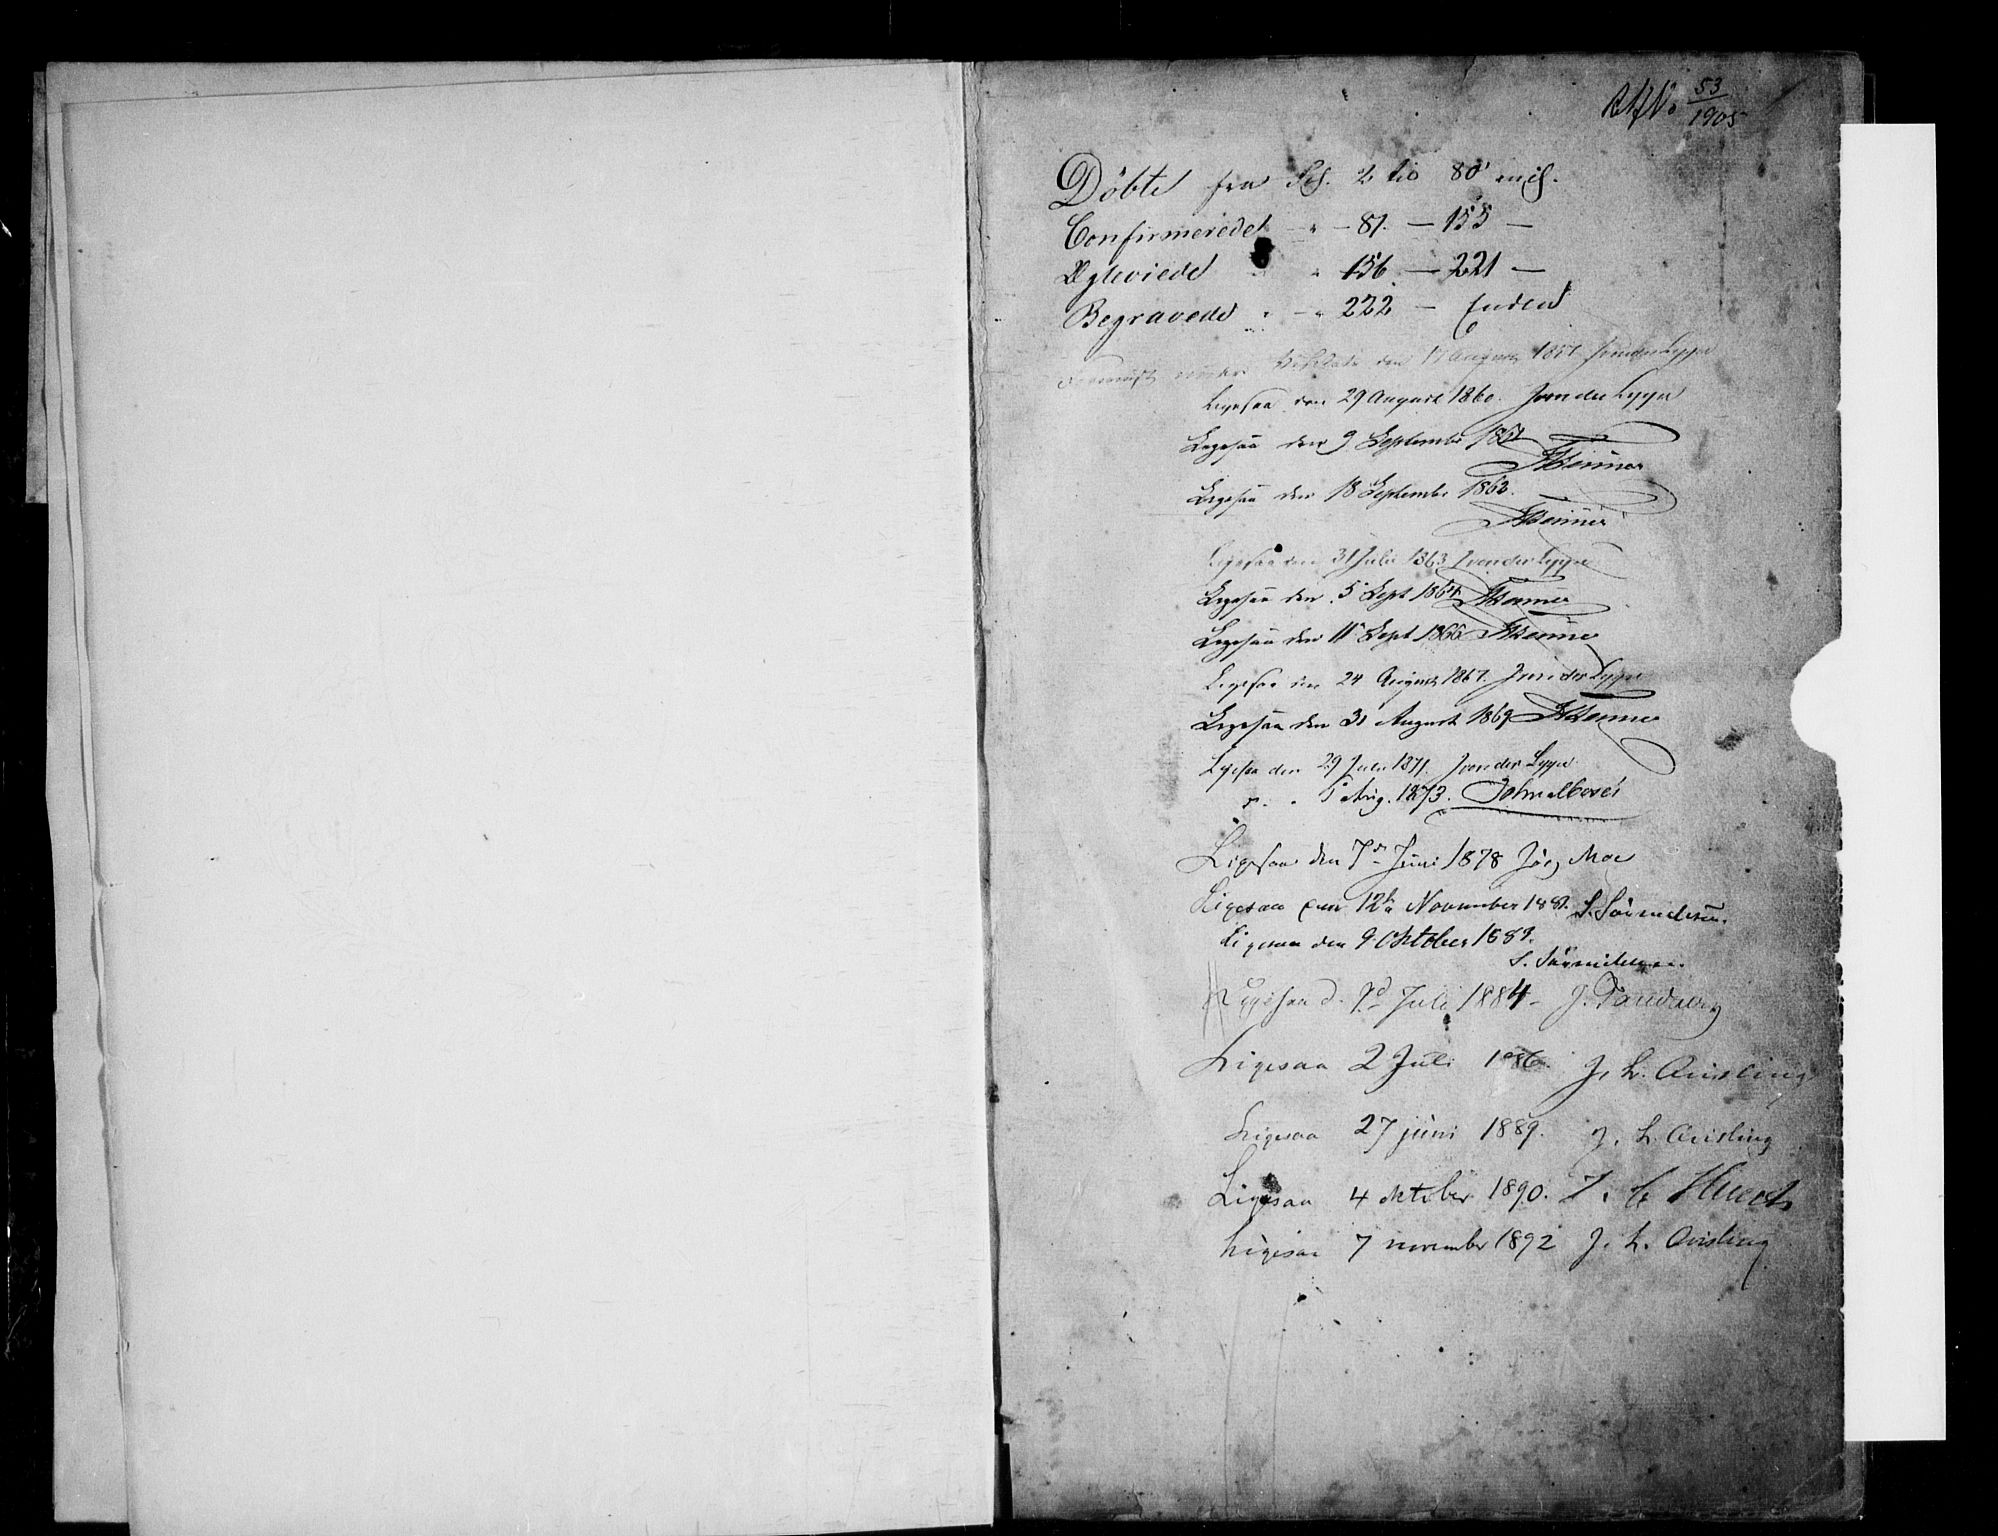 53
1905
Döbte fra Fol. 2 til 80 incl.
Confirmerede " - 81. - 155 -
Ægteviede " 156 - 221 -
Begravede " - " 222 - Enden
Foreviist under Visitats den 17 August 1857 J von der Lippe
Ligesaa den 29 August 1860. J von der Lippe
Ligesaa den 9 September 1861
Ligesaa den 18 September 1862.
Ligesaa den 31 Juli 1863 J von der Lippe
Ligesaa den 5 Sept 1864
Ligesaa den 11 Sept 1866
Ligesaa den 24 August 1867. J von der Lippe
Ligesaa den 31 August 1869
Ligesaa den 29 Juli 1871. J von der Lippe
" " 5 Aug. 1873.
Ligesaa den 7de Juni 1878 Jörg. Moe
Ligesaa den 12te November 1881.
Ligesaa den 9 Oktober 1883.
Ligesaa d. 9d Juli 1884 -
Ligesaa 2 Juli 1886. J. L. Qvisling
Ligesaa 27 juni 1889. J. L. Qvisling
Ligesaa 4 oktober 1890.
Ligesaa 7 november 1892 J. L. Qvisling